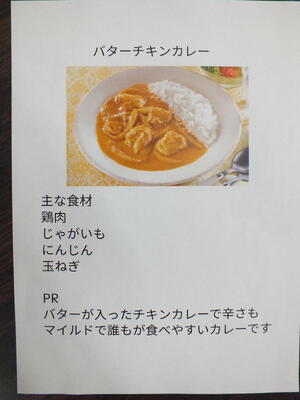 バターチキンカレー
主な食材
鶏肉
じゃがいも
にんじん
玉ねぎ
PR
バターが入ったチキンカレーで辛さも
マイルドで誰もが食べやすいカレーです